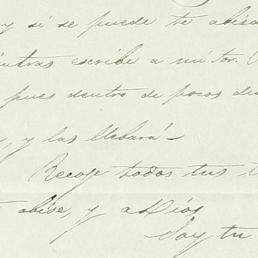 y si se puede te abisa
escribe a mi tor.
pues dentro de pocos di
, y las llebará-
Recoje todos tus
abise, y a Dios
Soy tu